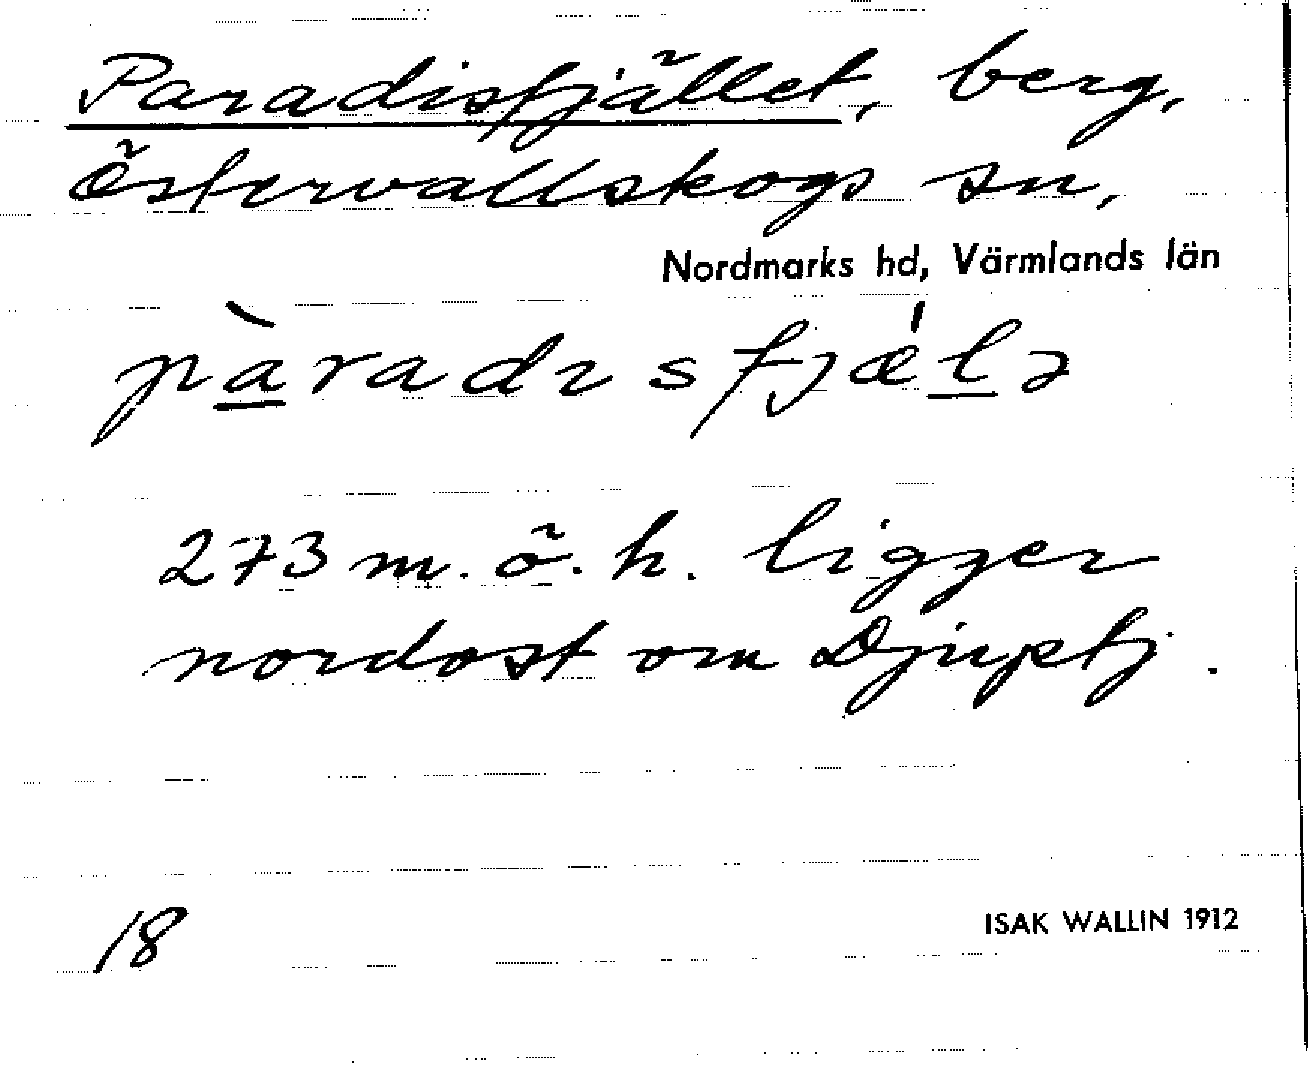 Paradisfjället, berg,
Östervallskogs sn,
Nordmarks hd, Värmlands län
pàradɪsfjǽlə
273 m. ö. h. ligger
nordost om Djuptj.
18
ISAK WALLIN 1912